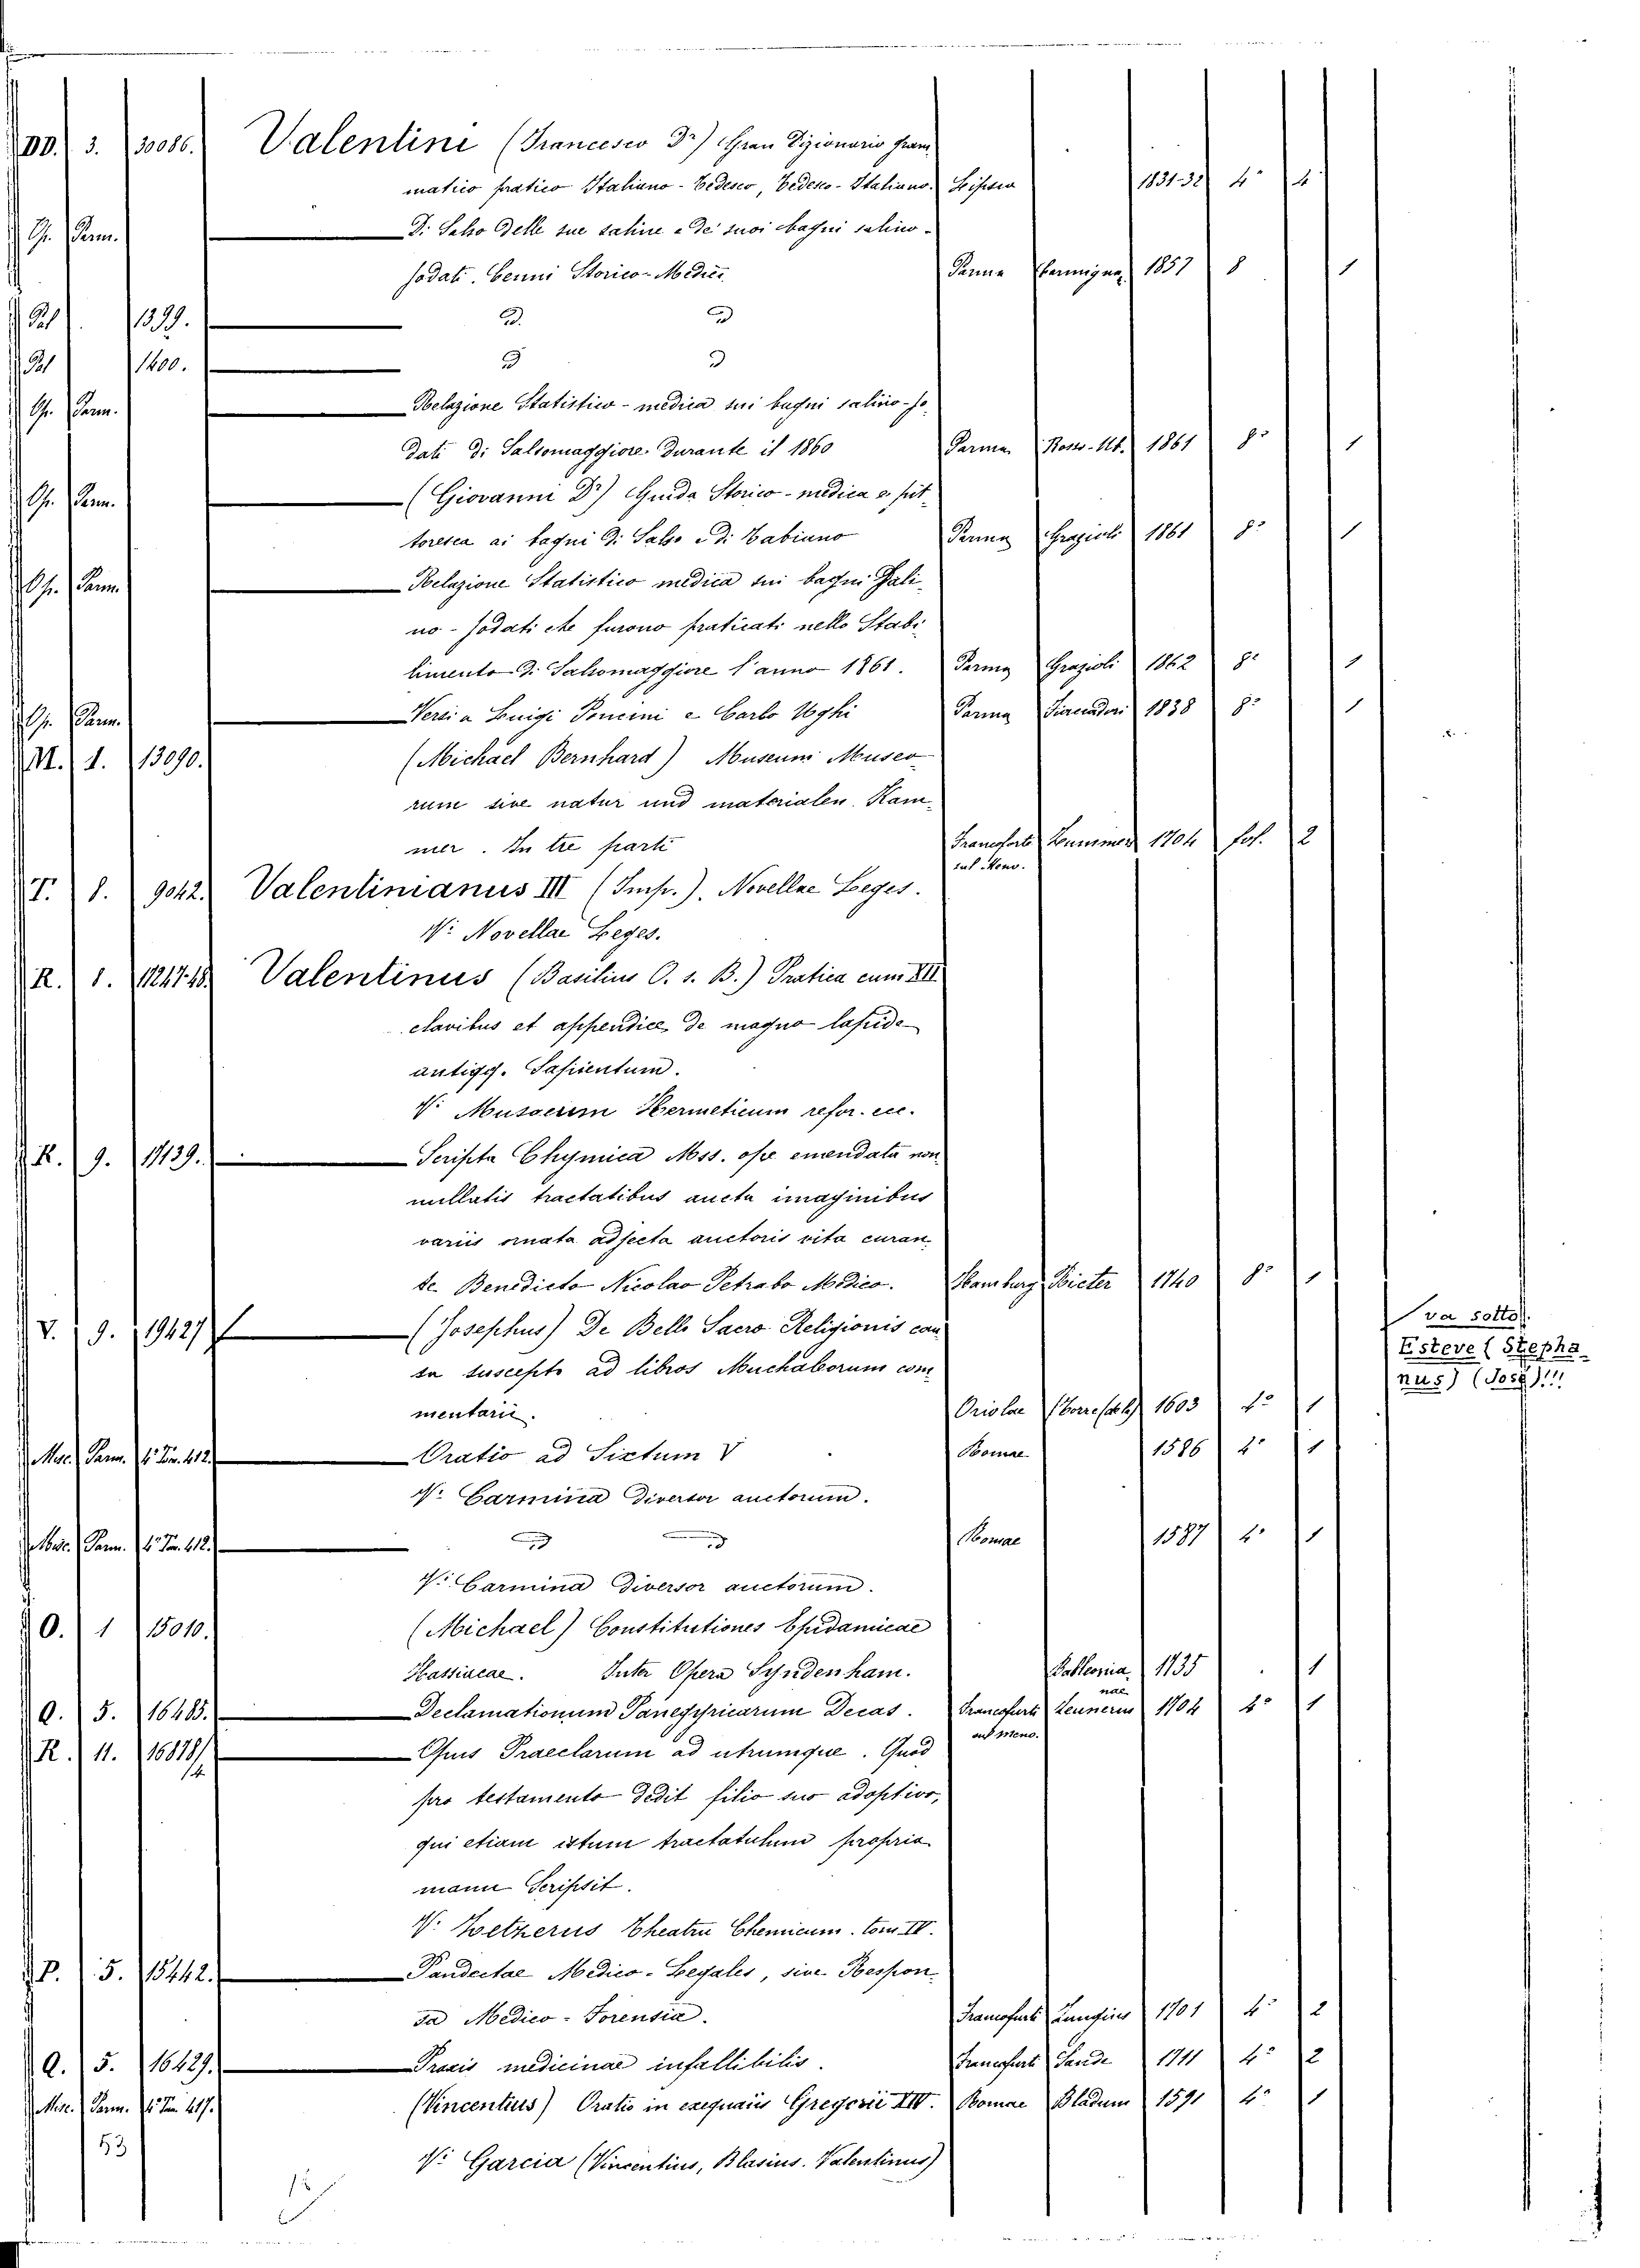 DD. 3. 30086. Valentini (Francesco Dr) Gran Dizionario gram
matico pratico Italiano-Tedesco, Tedesco-Italiano. Lipsia 1831-32 4° 4
G. Parm. Di Salso delle sue saline e de' suoi bagni salino-
jodati. Cenni Storico-Medici Parma 1857 8 1
Pal 1399. D. D
Pal 1400. D D
G. Parm. Relazione Statistico-medica sui bagni salino-jo
dati di Salsomaggiore durante il 1860 Parma Ross-Ub. 1861 8° 1
G. Parm. (Giovanni Dr) Guida Storico-medica e pit
toresca ai bagni di Salso e di Tabiano Parma Grazioli 1861 8° 1
G. Parm. Relazione Statistico medica sui bagni Sali
no-jodati che furono praticati nello Stabi
limento di Salsomaggiore l'anno 1861. Parma Grazioli 1862 8° 1
G. Parm. Versi a Luigi Poncini e Carlo Ughi Parma Fiaccadori 1838 8° 1
M. 1. 13090. (Michael Bernhard) Museum Museo
rum sive natur und materialen Kam
mer. In tre parti Francofurti sul Meno. 1704 fol. 2
T. 8. 9042. Valentinianus III (Imp.). Novellae Leges.
V. Novellae Leges.
R. 8. 11217.18 Valentinus (Basilius O. s. B.) Pratica cum XII
clavibus et appendice, de magno lapide
antiqq. Sapientum.
V. Musaeum Hermeticum refor. ec.
R. 9. 11139. Scripta Chymica Mss. ope emendata non
nullatis tractatibus aucta imaginibus
variis ornata adjecta auctoris vita curan
te Benedicto Nicolao Petrabo Medico. Hamburg 1740 8° 1
V. 9. 19427 (Josephus) De Bello Sacro Religionis cau
sa suscepto ad libros Machabeorum com
mentarii. Oriolae 1603 4° 1
va sotto
Esteve (Stepha
nus) (José)!!!
Misc. Parm. 4° Tom. 412. Oratio ad Sixtum V Romae 1586 4° 1
V. Carmina diversor auctorum.
Misc. Parm. 4° Tom. 412. D D Romae 1587 4° 1
V. Carmina diversor auctorum.
O. 1 15010. (Michael) Constitutiones Epidamicae
Hassiacae. Inter Opera Syndenham. 1735 1
Q. 5. 16485. Declamationum Panegyricarum Decas. Francofurti sul Meno. 1704 4° 1
R. 11. 16878/4. Opus Praeclarum ad utrumque. Quod
pro testamento dedit filio suo adoptivo,
qui etiam istum tractatulum propria
manu Scripsit.
V. Zetznerus Theatru Chemicum. tom. IV.
P. 5. 15442. Pandectae Medico-Legales, sive Respon
sa Medico-Forensia. Francofurti 1701 4° 2
Q. 5. 16429. Praxis medicinae infallibilis. Francofurti Sande 1711 4° 2
Misc. Parm. 4° Tom. 417. (Vincentius) Oratio in exequaiis Gregorii XIV. Romae Bladum 1591 4° 1
53 V. Garcia (Vincentius, Blasius. Valentinus)